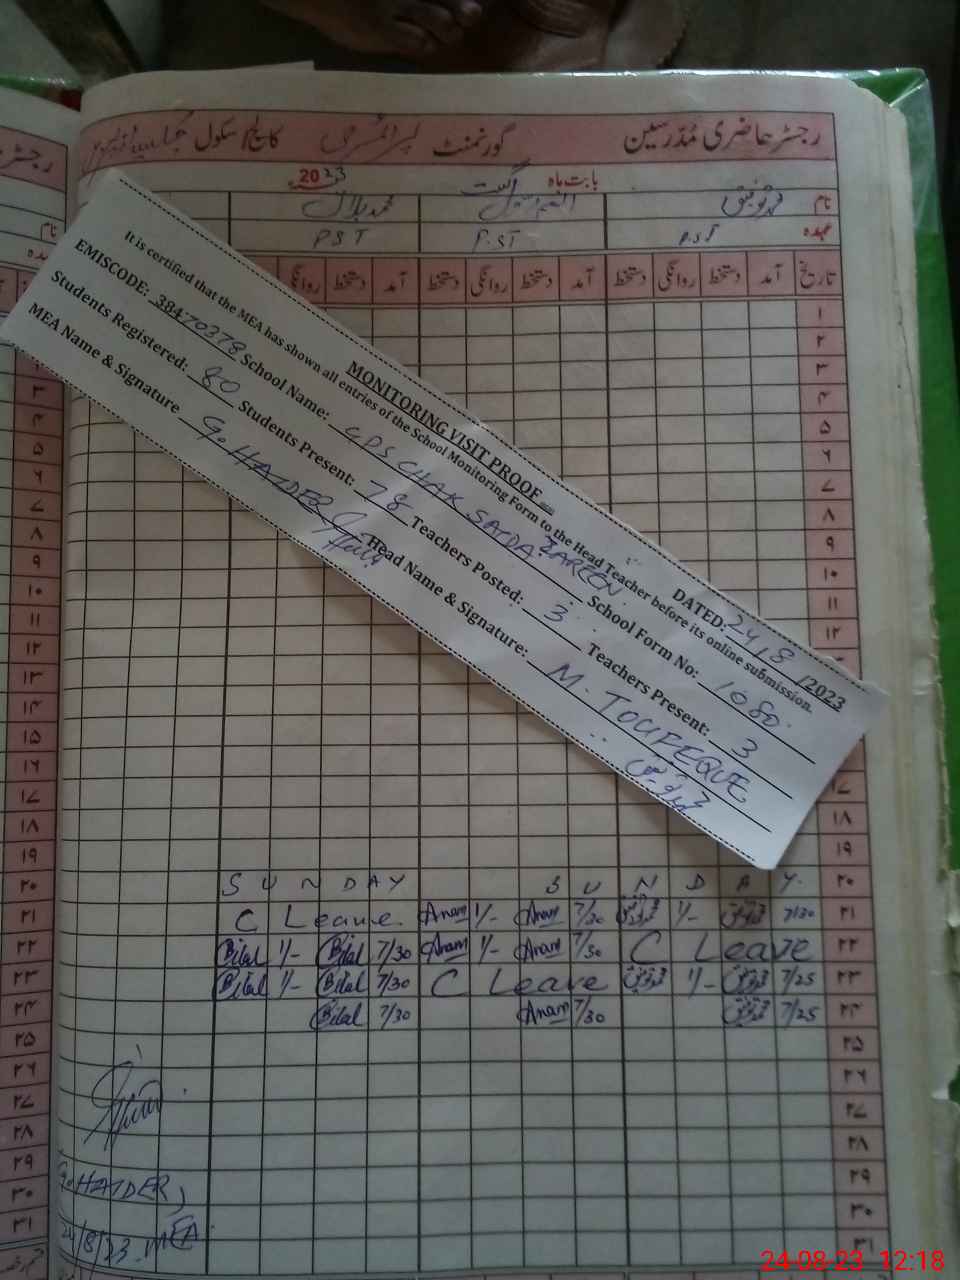 رجسٹر حاضری مُدَرسین گورنمنٹ پرائمری کالج/سکول
بابت ماہ اگست 2023
نام محمد توفیق محمد بلال
عہدہ P.S.T P.S.T P.S.T
تاریخ آمد دستخط روانگی دستخط آمد دستخط روانگی دستخط آمد دستخط روانگی
MONITORING VISIT PROOF
DATED: 24/8/2023
It is certified that the MEA has shown all entries of the School Monitoring Form to the Head Teacher before its online submission.
EMISCODE: 38470378 School Name: GDS CHAK SAIDA ZAREEN School Form No: 1080
Students Registered: 80 Students Present: 78 Teachers Posted: 3 Teachers Present: 3
MEA Name & Signature G. HAIDER Head Name & Signature: M. TOUFEQUE
۱
۲
۳
۴
۵
۶
۷
۸
۹
۱۰
۱۱
۱۲
۱۳
۱۴
۱۵
۱۶
۱۷
۱۸
۱۹
SUNDAY SUNDAY ۲۰
C Leave Anam 1/- Anam 7/30 توفیق 1/- توفیق 7/30 ۲۱
Bilal 1/- Bilal 7/30 Anam 1/- Anam 7/30 C Leave ۲۲
Bilal 1/- Bilal 7/30 C Leave توفیق 1/- توفیق 7/25 ۲۳
Bilal 7/30 Anam 7/30 توفیق 7/25 ۲۴
۲۵
۲۶
۲۷
۲۸
۲۹
۳۰
۳۱
G. HAIDER,
24/8/23 MEA.
24-08-23 12:18